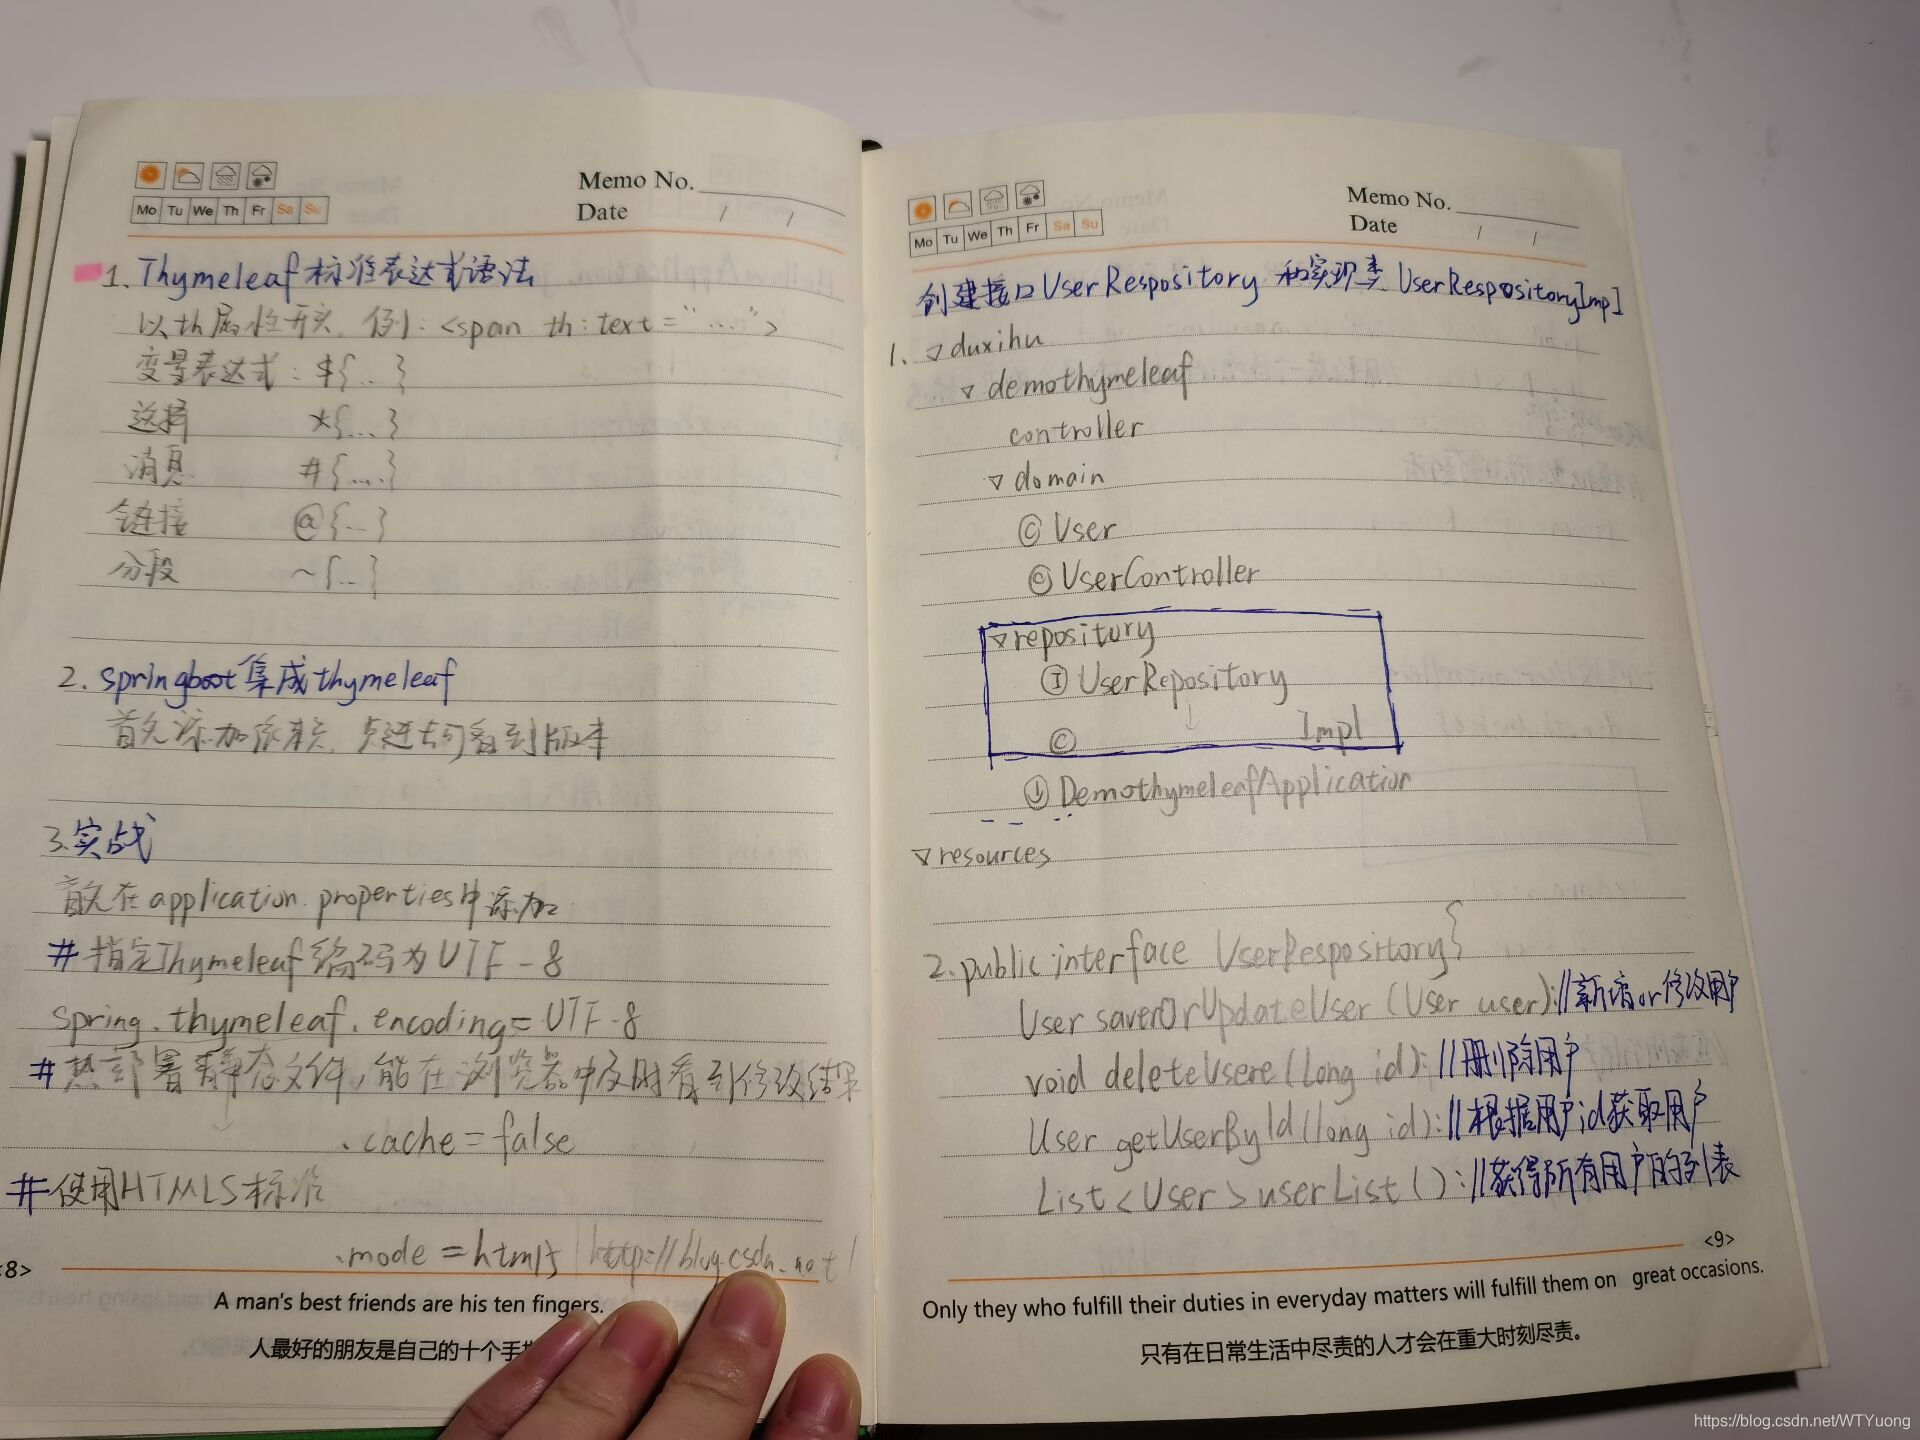 Mo Tu We Th Fr Sa Su
Memo No.
Date / /
1. Thymeleaf标准表达式语法
以th属性开头, 例: <span th:text="....">
变量表达式: ${...}
选择 *{....}
消息 #{....}
链接 @{...}
分段 ~{...}
2. springboot集成thymeleaf
首先添加依赖, 点进去可看到版本
3.实战
首先在application.properties中添加
#指定Thymeleaf编码为UTF-8
spring.thymeleaf.encoding=UTF-8
#热部署静态文件,能在浏览器中及时看到修改结果
.cache=false
#使用HTML5标准
.mode=html5 http://blog.csdn.net/
<8>
A man's best friends are his ten fingers.
人最好的朋友是自己的十个手
Mo Tu We Th Fr Sa Su
Memo No.
Date / /
创建接口UserRespository 和实现类 UserRespositoryImpl
1. ▽duxihu
▽demothymeleaf
controller
▽domain
Ⓒ User
Ⓒ UserController
▽repository
Ⓘ UserRepository
Ⓒ ↓ Impl
DemothymeleafApplication
▽resources
2.public interface UserRespository{
User saverOrUpdateUser(User user);//新增or修改用户
void deleteUsere(long id);//删除用户
User getUserById(long id);//根据用户id获取用户
List<User>userList();//获得所有用户的列表
<9>
Only they who fulfill their duties in everyday matters will fulfill them on great occasions.
只有在日常生活中尽责的人才会在重大时刻尽责。
https://blog.csdn.net/WTYuong